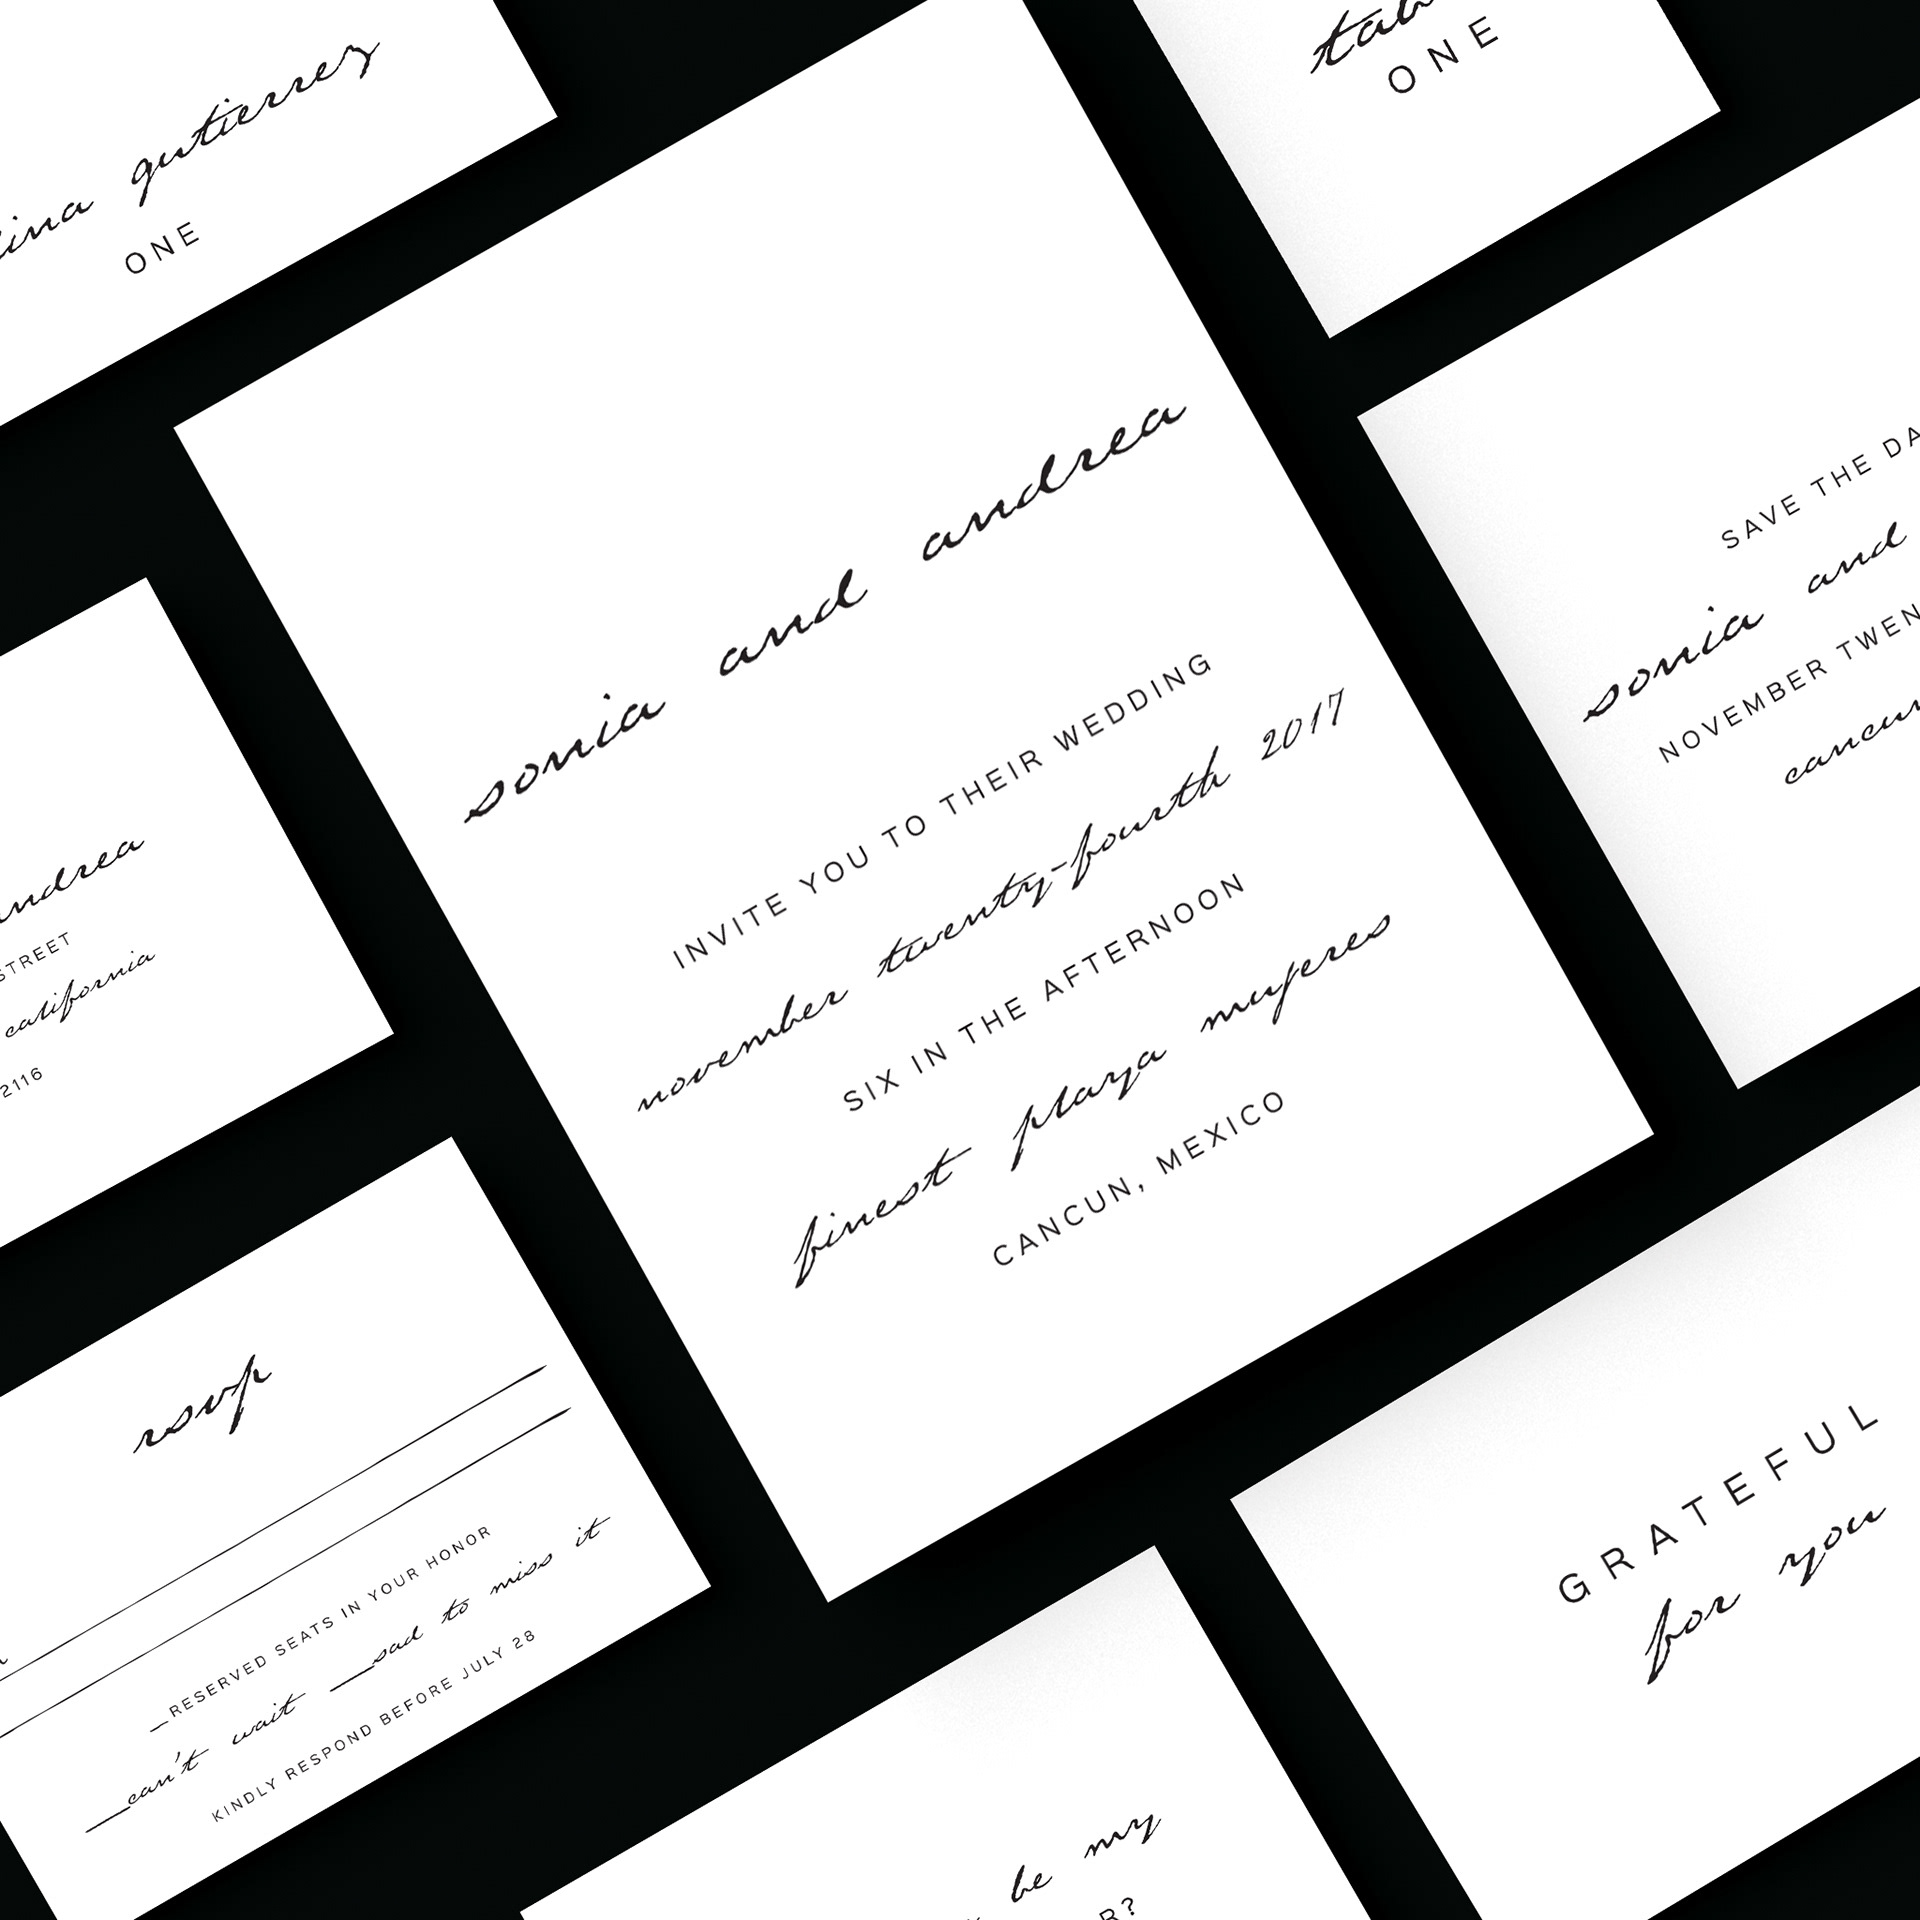 gutierrez
ONE
ONE
sonia and andrea
INVITE YOU TO THEIR WEDDING
november twenty-fourth 2017
SIX IN THE AFTERNOON
finest playa mujeres
CANCUN, MEXICO
SAVE THE
sonia and
NOVEMBER
andrea
STREET
california
2116
rsvp
_RESERVED SEATS IN YOUR HONOR
_can't wait _sad to miss it
KINDLY RESPOND BEFORE JULY 28
GRATEFUL
for you
be my